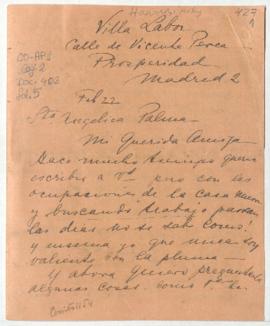 427
Villa Labor
Calle de Vicente Perea
Prosperidad
Madrid 2
Feb 22
Sta Angelica Palma
Mi Querida Amiga
Hace mucho tiempo quiero
escribir a Vd pero con las
ocupaciones de la casa nueva
y buscando trabajo pasan
las dias no se sabe como!
y encima yo que nunca soy
valiente con la pluma—
Y ahora quiero preguntarle
algunas cosas. Como